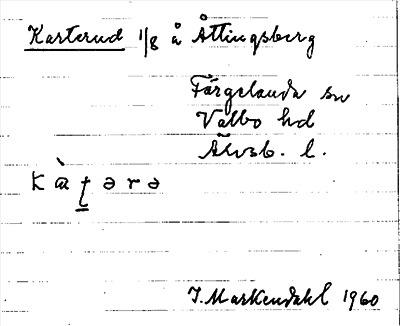 Karterud 1/8 å Åttingsberg
Färgelanda sn
Valbo hd
Älvsb. l.
kàt̠ərə
J. Markendahl 1960